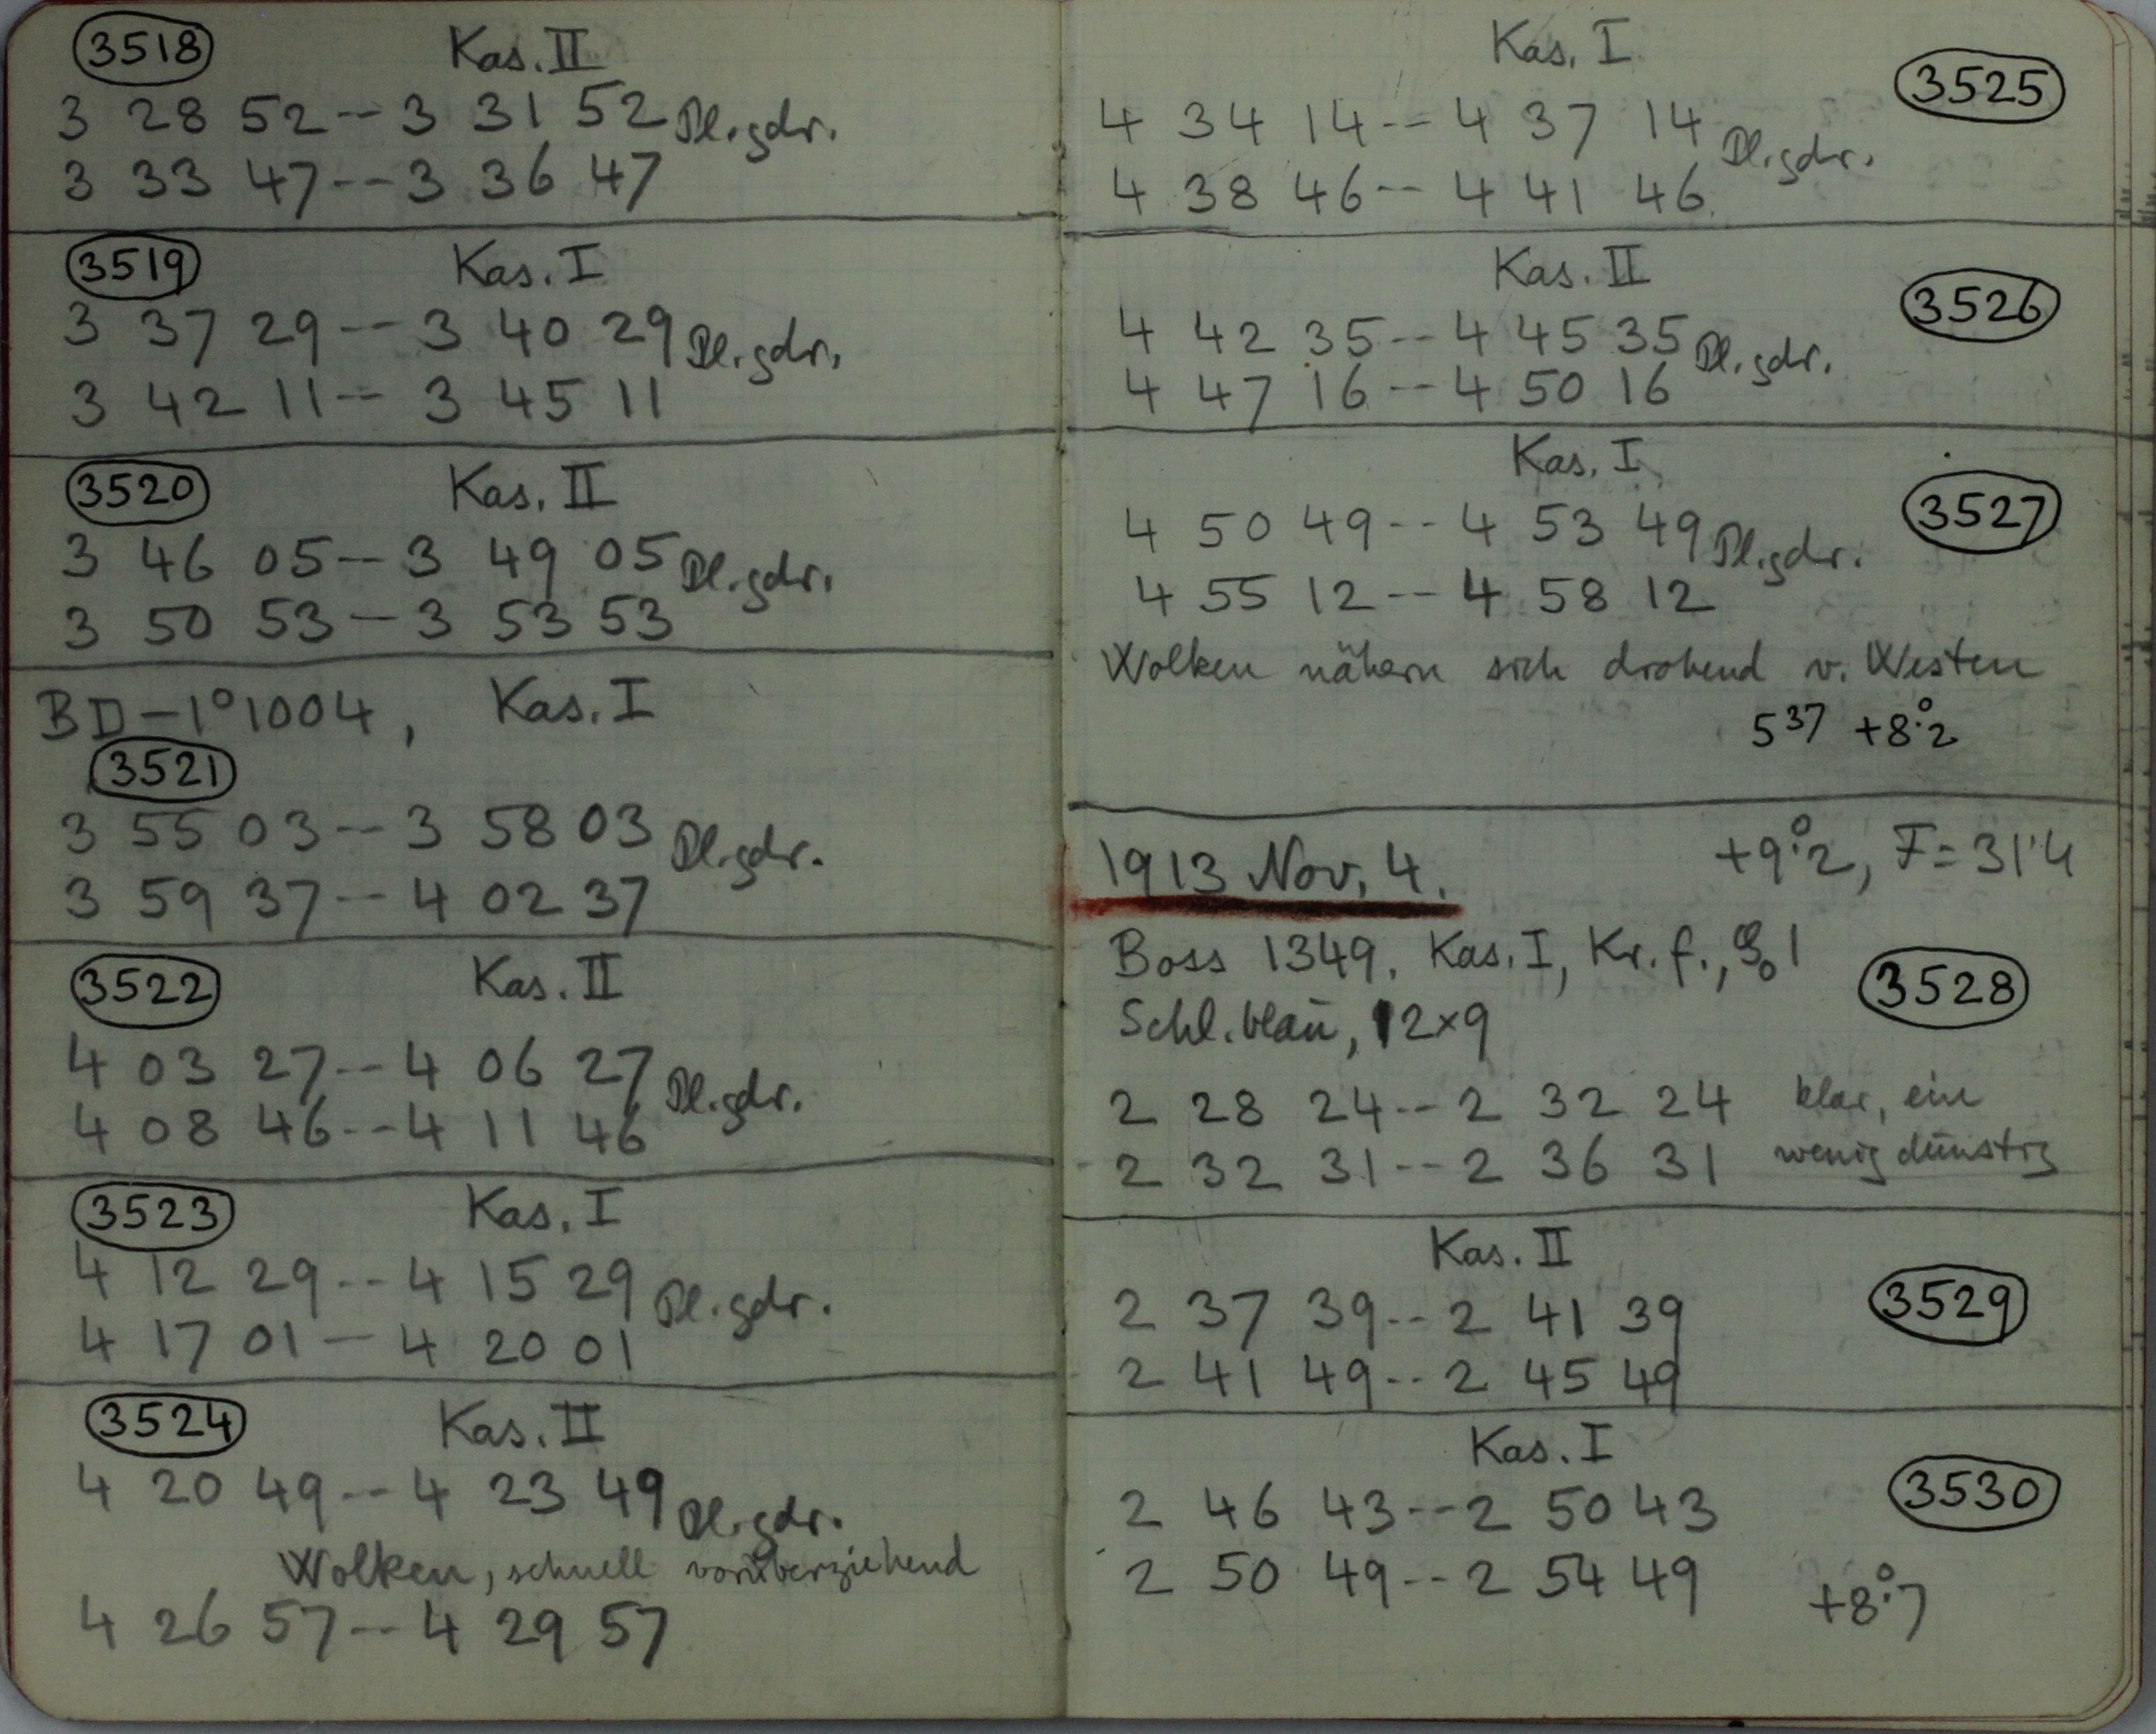 3518 Kas. II
3 28 52 -- 3 31 52 Pl. gdr.
3 33 47 -- 3 36 47
3519 Kas. I
3 37 29 -- 3 40 29 Pl. gdr.
3 42 11 -- 3 45 11
3520 Kas. II
3 46 05 -- 3 49 05 Pl. gdr.
3 50 53 -- 3 53 53
BD -1°1004, Kas. I
3521
3 55 03 -- 3 58 03 Pl. gdr.
3 59 37 -- 4 02 37
3522 Kas. II
4 03 27 -- 4 06 27 Pl. gdr.
4 08 46 -- 4 11 46
3523 Kas. I
4 12 29 -- 4 15 29 Pl. gdr.
4 17 01 -- 4 20 01
3524 Kas. II
4 20 49 -- 4 23 49 Pl. gdr.
Wolken, schnell vorüberziehend
4 26 57 -- 4 29 57
Kas. I 3525
4 34 14 -- 4 37 14 Pl. gdr.
4 38 46 -- 4 41 46
Kas. II 3526
4 42 35 -- 4 45 35 Pl. gdr.
4 47 16 -- 4 50 16
Kas. I 3527
4 50 49 -- 4 53 49 Pl. gdr.
4 55 12 -- 4 58 12
Wolken nähern sich drohend v. Westen
5 37 +8°.2
1913 Nov. 4. +9°.2, F = 31'4
Boss 1349, Kas. I, Kr. f., 1
3528
Schl. blau, 12×9
2 28 24 -- 2 32 24 klar, ein
2 32 31 -- 2 36 31 wenig dunstig
Kas. II
2 37 39 -- 2 41 39 3529
2 41 49 -- 2 45 49
Kas. I
2 46 43 -- 2 50 43 3530
2 50 49 -- 2 54 49 +8°.7